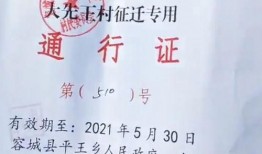 大先王村征迁专用
通行证
第(510)号
有效期至：2021年5月30日
容城县平王乡人民政府